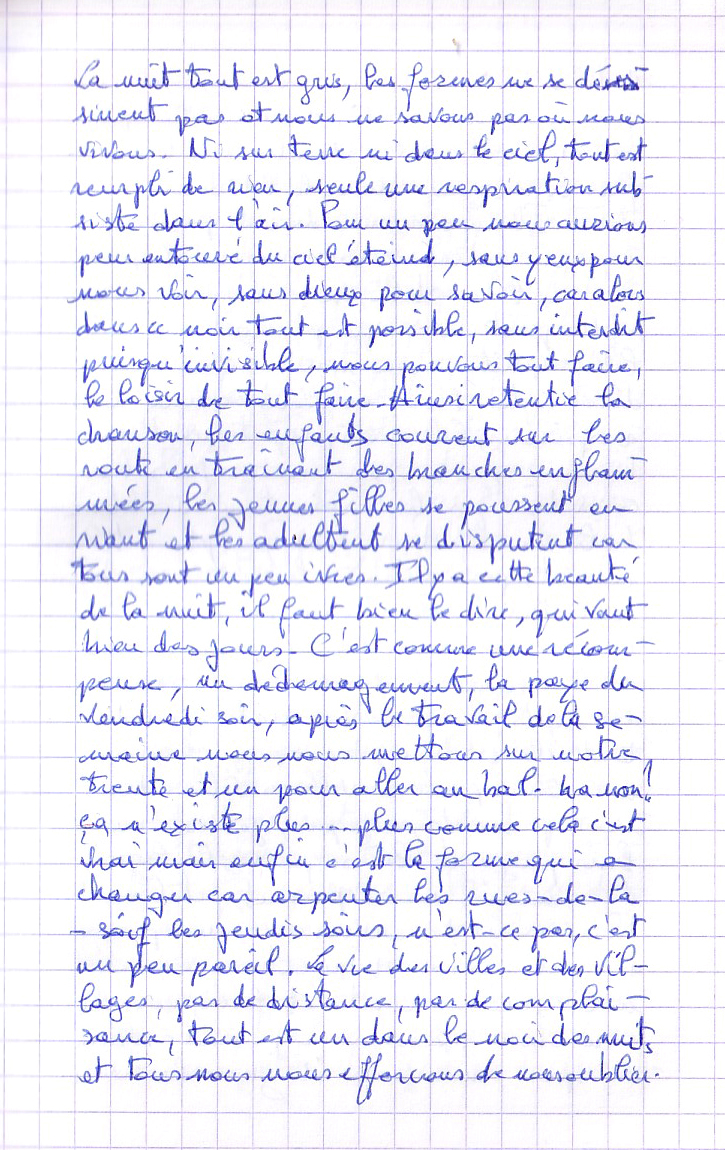 La nuit tout est gris, les formes ne se dé
sinent pas et nous ne savons pas où nous
vivons. Ni sur terre ni dans le ciel, tout est
rempli de rien, seule une respiration sub-
siste dans l'air. Pour un peu nous aurions
peur entouré du ciel éteind, sans yeux pour
nous voir, sans dieux pour savoir, car alors
dans ce noir tout est possible, sans interdit
puisqu'invisible, nous pouvons tout faire,
le loisir de tout faire. Ainsi retentie la
chanson, les enfants courent sur les
route en traînant des branches enflam-
mées, les jeunes filles se poussent en
riant et les se disputent car
tous sont un peu ivres. Il y a cette beauté
de la nuit, il faut bien le dire, qui vaut
bien des jours. C'est comme une récom-
pense, un dédomagement, la paye du
vendredi soir, après le travail de la se-
maine nous nous mettons sur notre
trente et un pour aller au bal. non!
ça n'existe plus ... plus comme cela c'est
vrai mais enfin c'est la forme qui a
changer car arpenter les rues-de-la
-soif les jeudis soirs, n'est-ce pas, c'est
un peu pareil. La vie des villes et des vil-
lages, pas de distance, pas de complai-
sance, tout est un dans le noir des nuits
et tous nous nous efforcons de nous oublier.